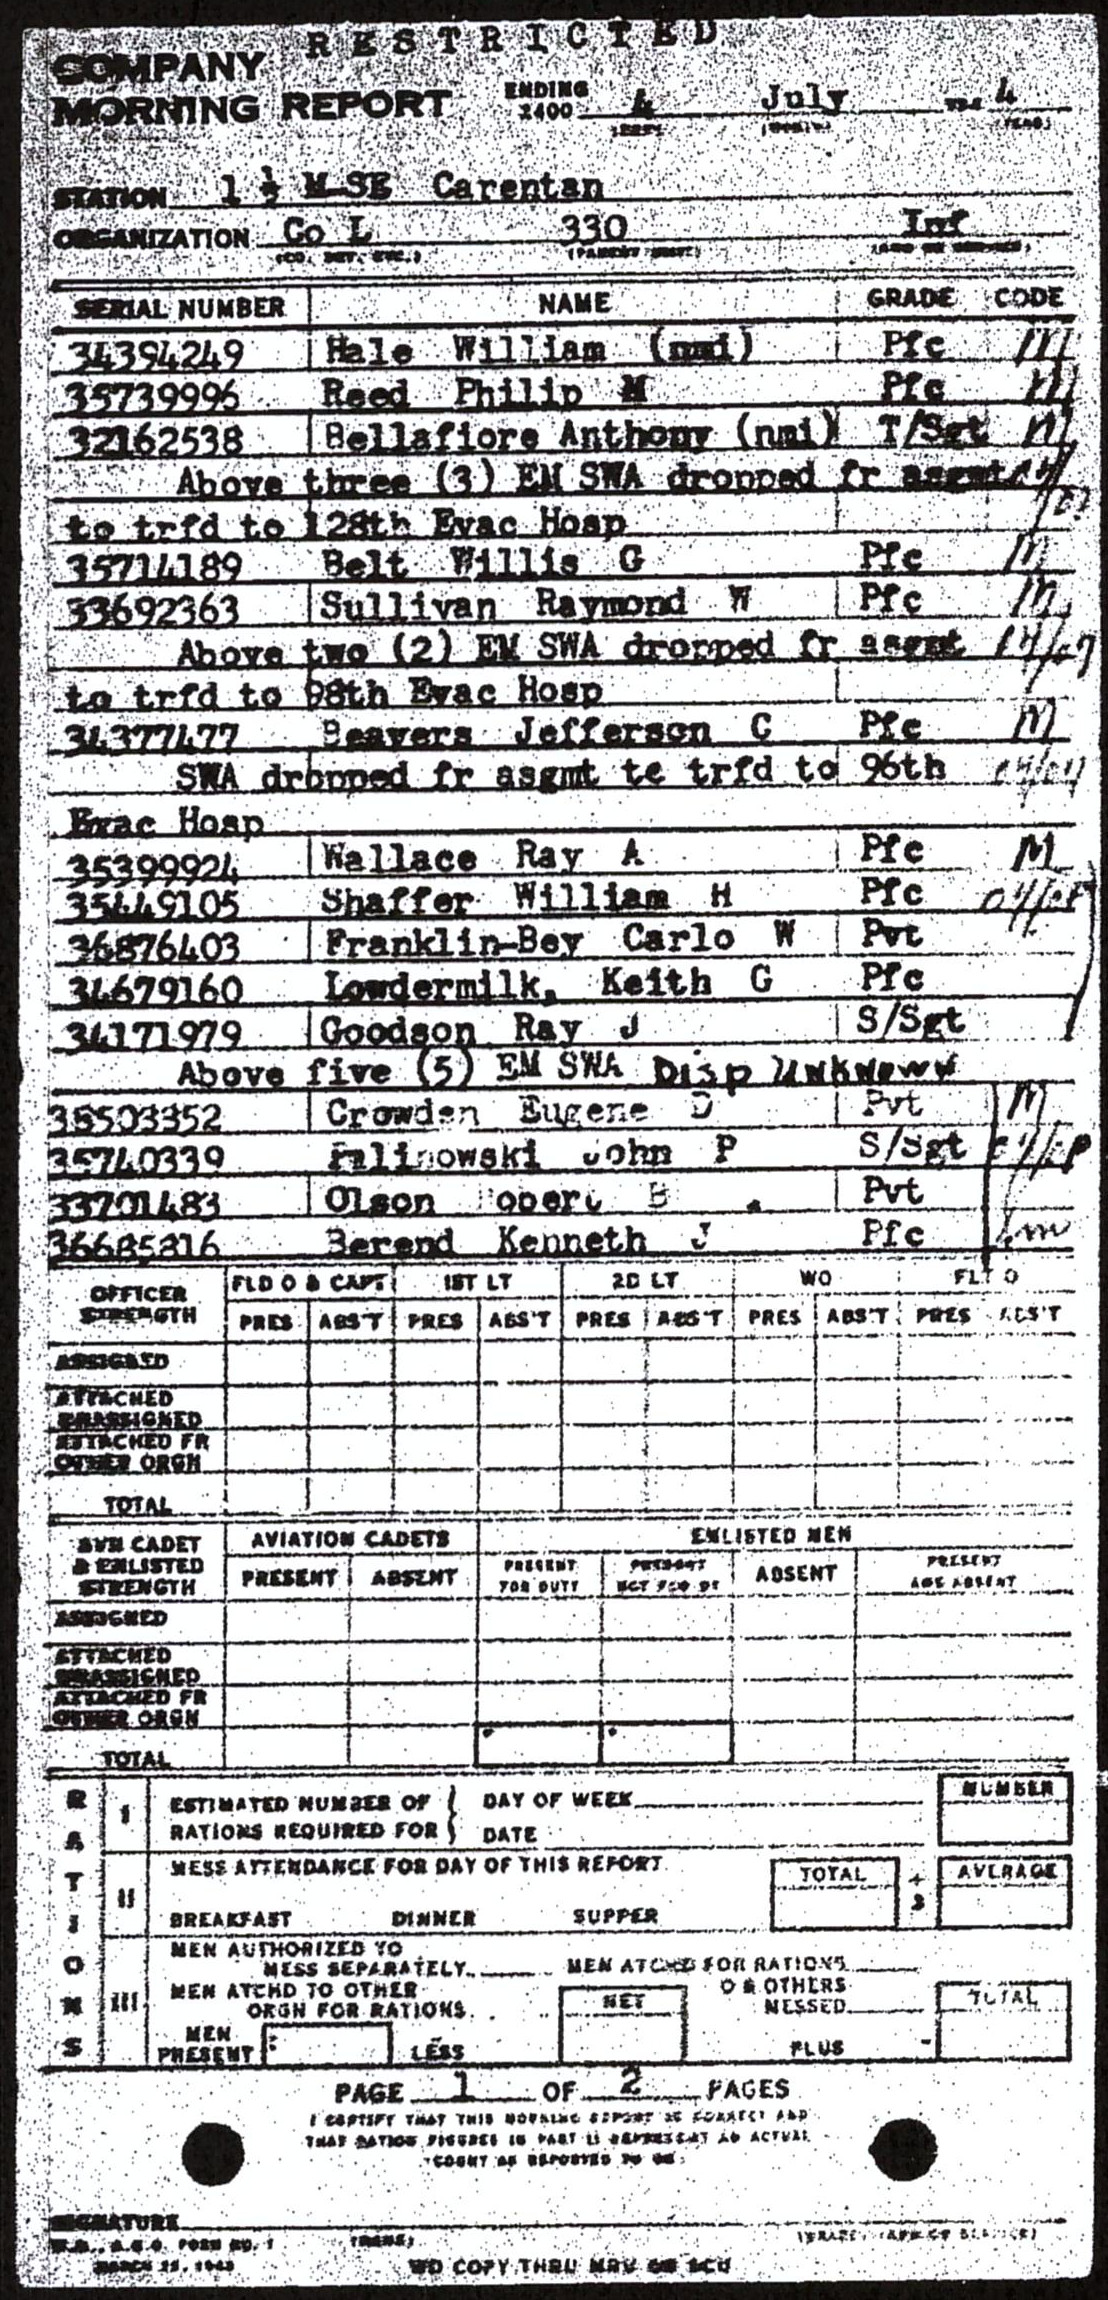 RESTRICTED
COMPANY
MORNING REPORT ENDING 2400 4 July 4
(DAY) (MONTH) (YEAR)
STATION 1 ½ M SE Carentan
ORGANIZATION Co L 330 Inf
(CO, DET, ETC.) (PARENT UNIT) (ARM OR SERVICE)
SERIAL NUMBER NAME GRADE CODE
34394249 Hale William (nmi) Pfc M
35739996 Reed Philip M Pfc M
32162538 Bellafiore Anthony (nmi) T/Sgt M
Above three (3) EM SWA dropped fr asgmt
to trfd to 128th Evac Hosp
35714189 Belt Willis G Pfc M
33692363 Sullivan Raymond W Pfc M
Above two (2) EM SWA dropped fr asgmt
to trfd to 98th Evac Hosp
34377477 Beavers Jefferson C Pfc M
SWA dropped fr asgmt to trfd to 96th
Evac Hosp
35399924 Wallace Ray A Pfc M
35449105 Shaffer William H Pfc
36876403 Franklin-Bey Carlo W Pvt
34679160 Lowdermilk, Keith G Pfc
34171979 Goodson Ray J S/Sgt
Above five (5) EM SWA Disp Unknown
35503352 Crowden Eugene D Pvt M
35740339 John P S/Sgt
33701483 Olson Robert B Pvt
36685816 Berend Kenneth J Pfc
OFFICER STRENGTH FLD O & CAPT 1ST LT 2D LT WO FLT O
PRES ABS'T PRES ABS'T PRES ABS'T PRES ABS'T PRES ABS'T
ASSIGNED
ATTACHED UNASSIGNED
ATTACHED FR OTHER ORGN
TOTAL
AVN CADET & ENLISTED STRENGTH AVIATION CADETS ENLISTED MEN
PRESENT ABSENT PRESENT FOR DUTY PRESENT NOT FOR DY ABSENT PRESENT AND ABSENT
ASSIGNED
ATTACHED UNASSIGNED
ATTACHED FR OTHER ORGN
TOTAL
RATIONS
I ESTIMATED NUMBER OF RATIONS REQUIRED FOR DAY OF WEEK DATE NUMBER
II MESS ATTENDANCE FOR DAY OF THIS REPORT TOTAL ÷ 3 AVERAGE
BREAKFAST DINNER SUPPER
III MEN AUTHORIZED TO MESS SEPARATELY MEN ATCHD FOR RATIONS
MEN ATCHD TO OTHER ORGN FOR RATIONS NET O & OTHERS MESSED TOTAL
MEN PRESENT LESS PLUS
PAGE 1 OF 2 PAGES
I CERTIFY THAT THIS MORNING REPORT IS CORRECT AND
THAT RATION FIGURES IN PART II REPRESENT AN ACTUAL
COUNT AS REPORTED TO ME.
SIGNATURE
(NAME)
W.D., A.G.O. FORM NO. 1
MARCH 25, 1943
WD COPY THRU MRU OR SCU